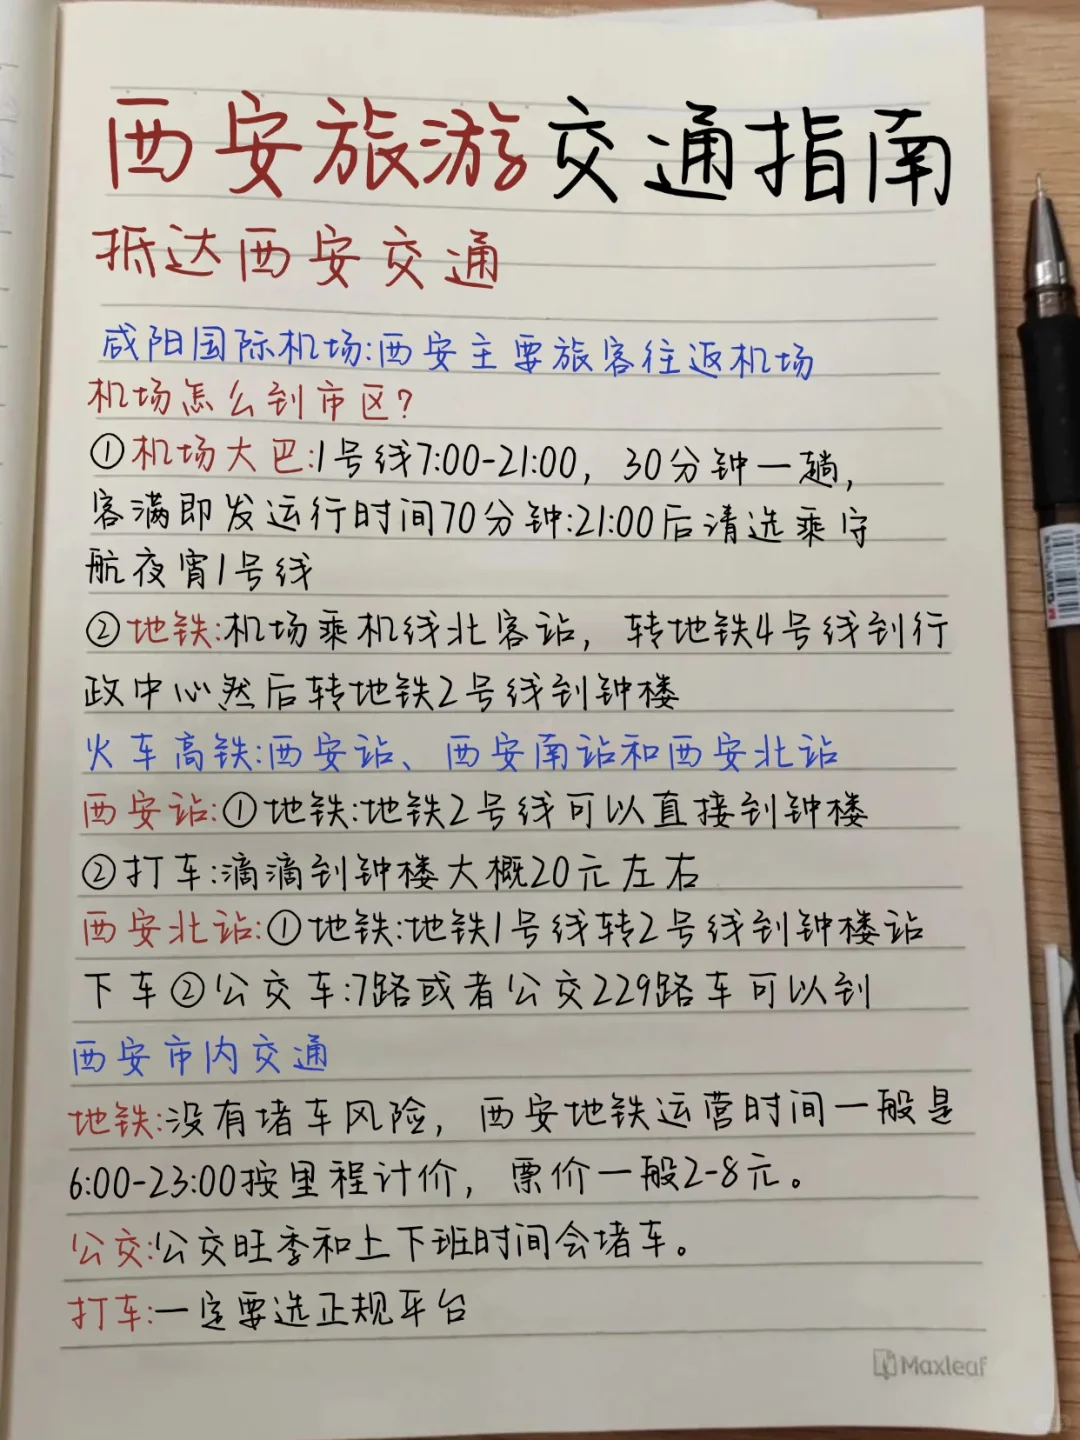 西安旅游交通指南
抵达西安交通
咸阳国际机场:西安主要旅客往返机场
机场怎么到市区?
①机场大巴:1号线7:00-21:00, 30分钟一趟,
客满即发运行时间70分钟:21:00后请选乘守
航夜宵1号线
②地铁:机场乘机线北客站, 转地铁4号线到行
政中心然后转地铁2号线到钟楼
火车高铁:西安站、西安南站和西安北站
西安站:①地铁:地铁2号线可以直接到钟楼
②打车:滴滴到钟楼大概20元左右
西安北站:①地铁:地铁1号线转2号线到钟楼站
下车②公交车:7路或者公交229路车可以到
西安市内交通
地铁:没有堵车风险, 西安地铁运营时间一般是
6:00-23:00按里程计价, 票价一般2-8元。
公交:公交旺季和上下班时间会堵车。
打车:一定要选正规平台
Maxleaf